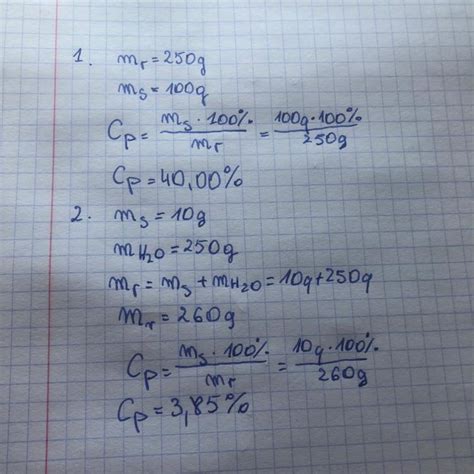 1. m_r = 250g
m_s = 100g
C_p = m_s · 100% / m_r = 100g · 100% / 250g
C_p = 40,00%
2. m_s = 10g
m_H2O = 250g
m_r = m_s + m_H2O = 10g + 250g
m_r = 260g
C_p = m_s · 100% / m_r = 10g · 100% / 260g
C_p = 3,85%